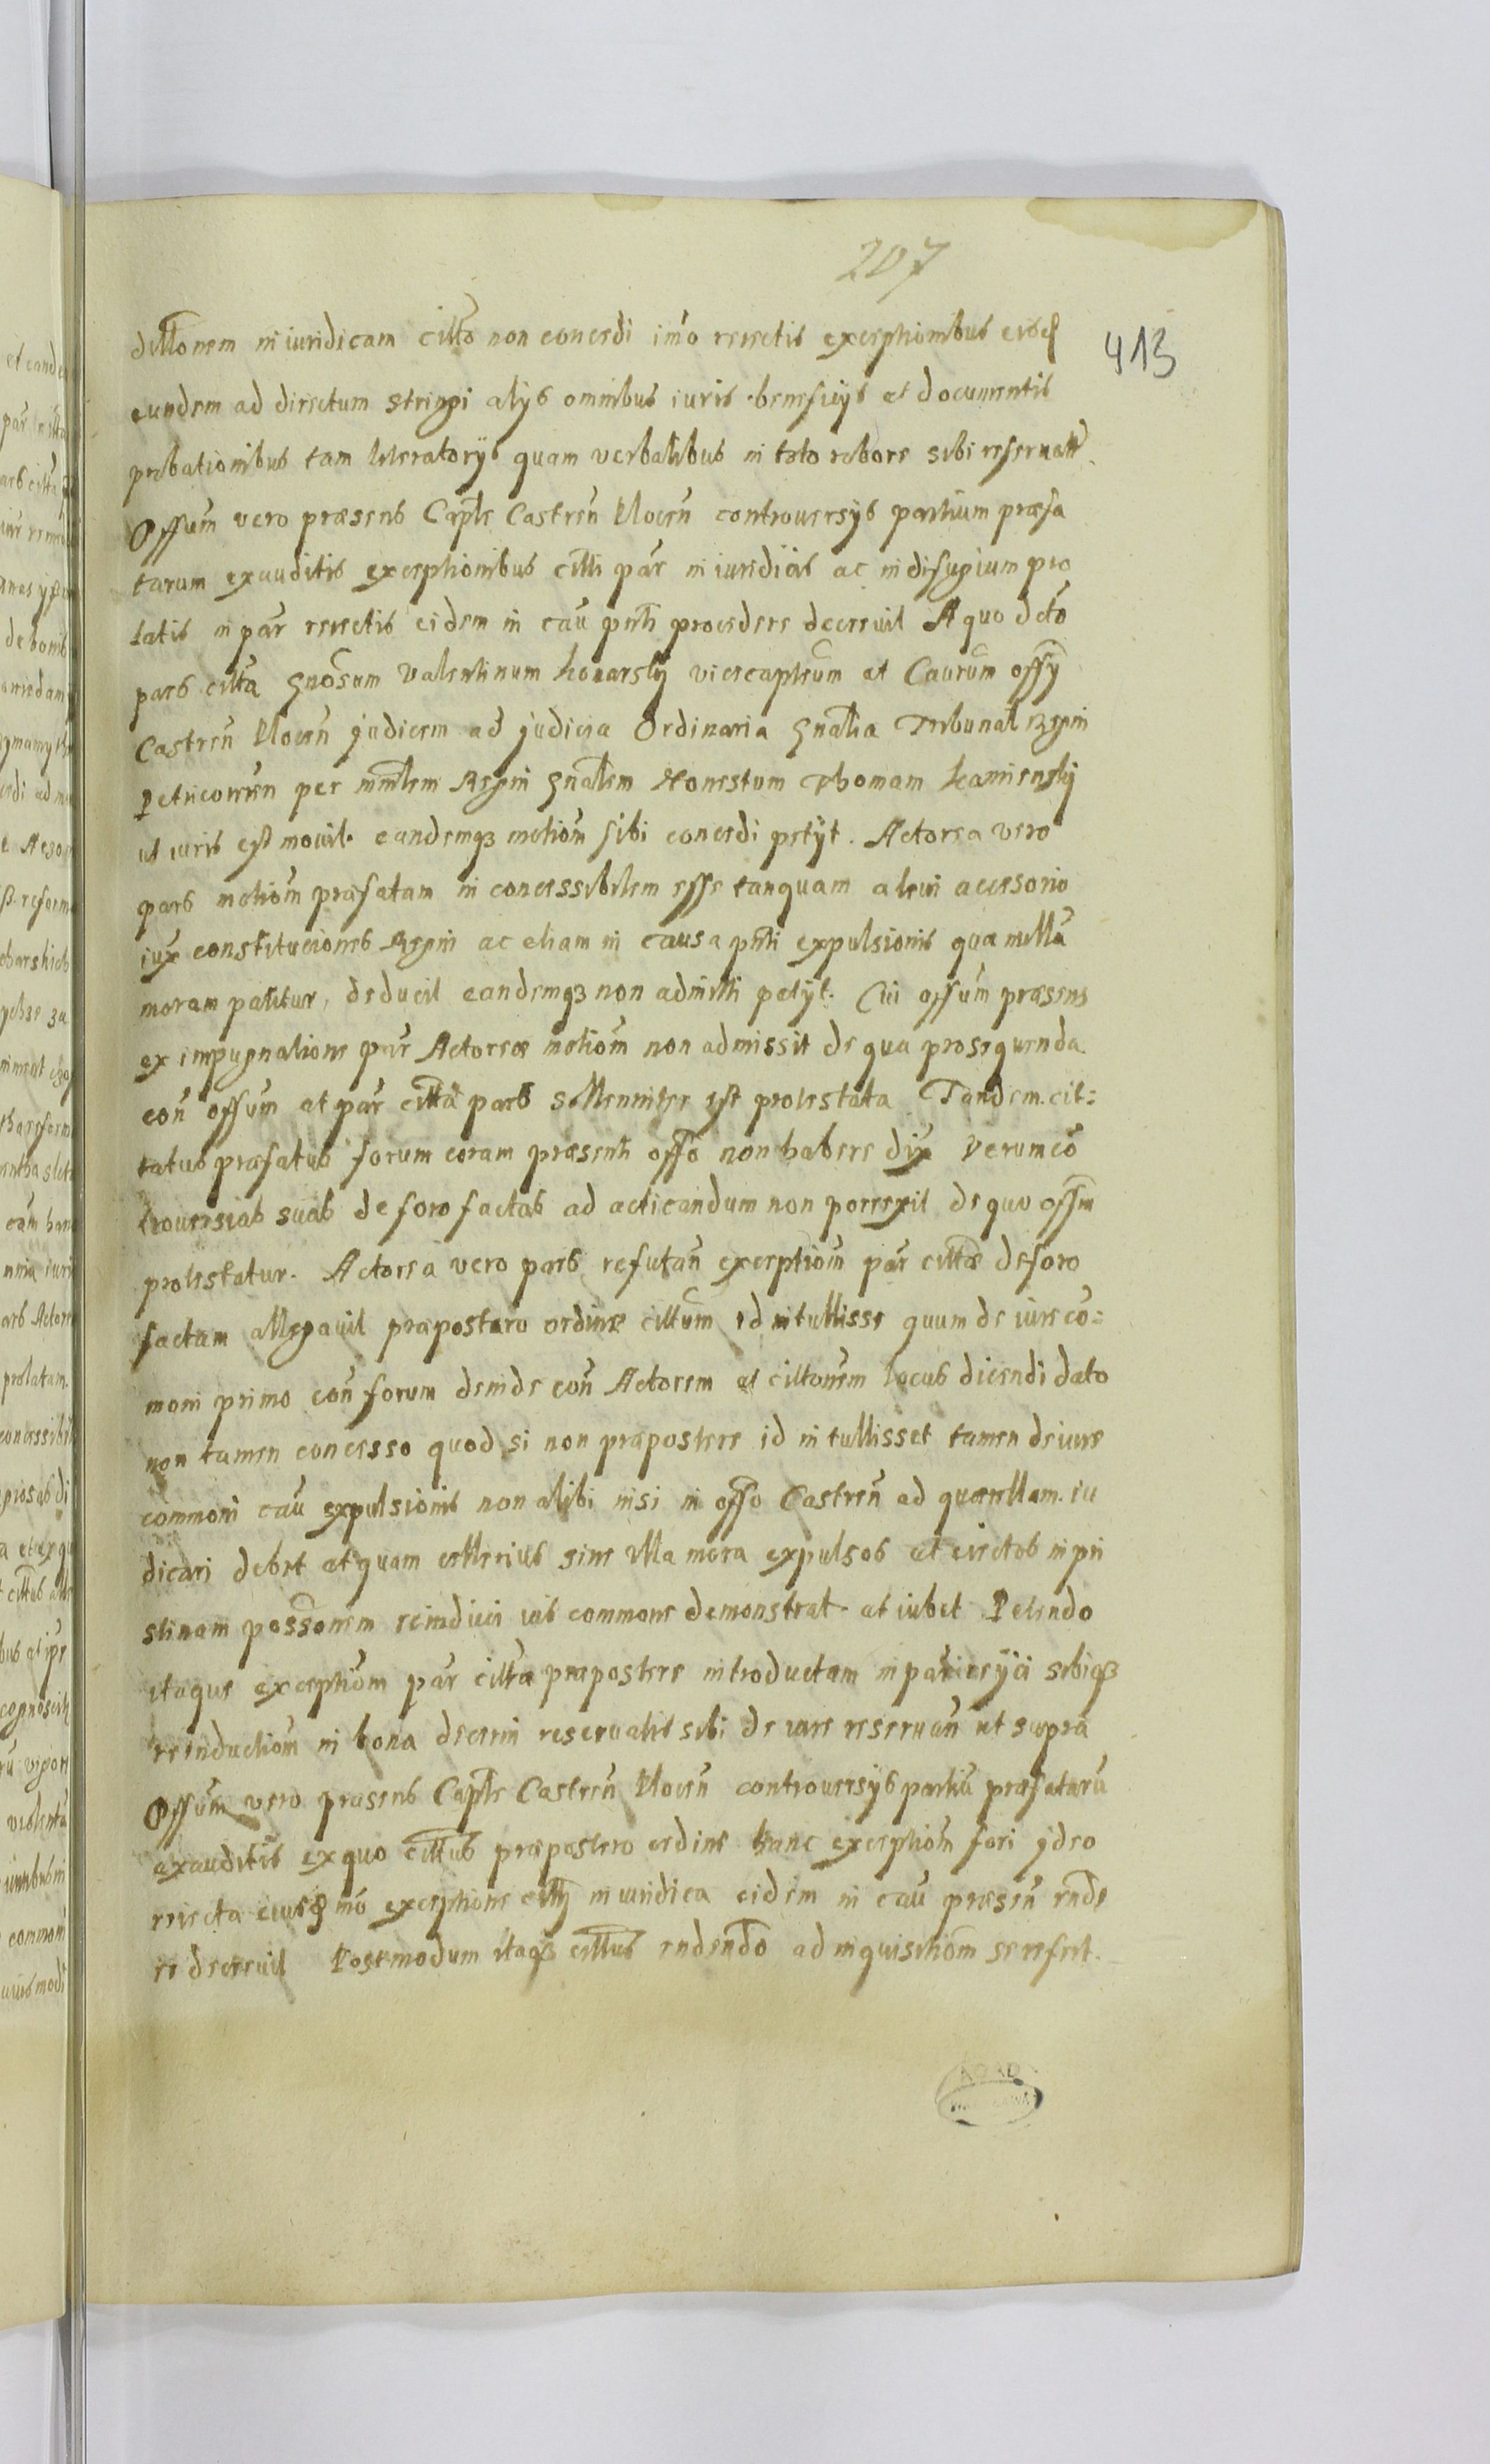 207
413
dillonem in iuridicam cilto non concedi imo reiectis exceptionibus eiusd
eundem ad directum stringi alijs omnibus iuris beneficijs et documentis
probationibus tam literatorijs quam verbalibus in toto robore sibi reseruatis
Offum vero præsens Captle Castren Ploцen controuersijs partium præfa
tarum exauditis exceptionibus citti par in iuridicis ac in difugium pro
latis in par reiectis eidem in cau pnti procedere decreuit A quo dcto
pars citta Gnosum Valentinum Konarsky vicecapteum et Caurum offy
Castren Plocen judicem ad judicia Ordinaria Gnalia Tribunal Regni
Petricouien per mnlem Regni Gnalem Honestum Thomam Kamiensky
ut iuris est mouit eandemq3 motiom sibi concedi petyt. Actorea vero
pars motiom præfatam in concessibilem esse tanquam a leui accesorio
iux constitucionis Regni ac etiam in causa pnti expulsionis quæ nullã
moram patitur, deducit eandemq3 non admitti petyt. Cui offum præsens
ex impugnatione par Actoreæ motiom non admissit de qua prosequenda
con offum et par citta pars sollenniter est protestata Tandem cit:
tatus præfatus forum coram præsenti offo non habere dix verum co
trouersias suas de foro factas ad acticandum non porrexit de quo offm
protestatur. Actorea vero pars refutan exceptiom par cittæ de foro
factam allegauit præpostero ordine cittum id intullisse quum de iure co:
moni primo con forum deinde con Actorem et cittonem locus dicendi dato
non tamen concesso quod si non præpostere id intullisset tamen de iure
commoni cau expulsionis non alibi nisi in offo Castren ad quærellam iu
dicari debet et quam cellerius sine ulla mora expulsos et eiectos in pri
stinam possonem reinduci ius commone demonstrat et iubet Petendo
itaque exceptiom par citta præpostere introductam in par reijci sibiq3
reinductiom in bona decerni reseruatis sibi de iure reseruan ut supra
Offum vero præsens Captle Castren Plocen controuersijs partiu præfataru
exauditis ex quo cittus præpostero ordine hanc exceptiom fori ideo
reiecta eiusmo exceptione citti in iuridica eidem in cau præsen rnde
re decreuit Postmodum itaq3 cittus rndendo ad inquisitiom se refert.
AGAD